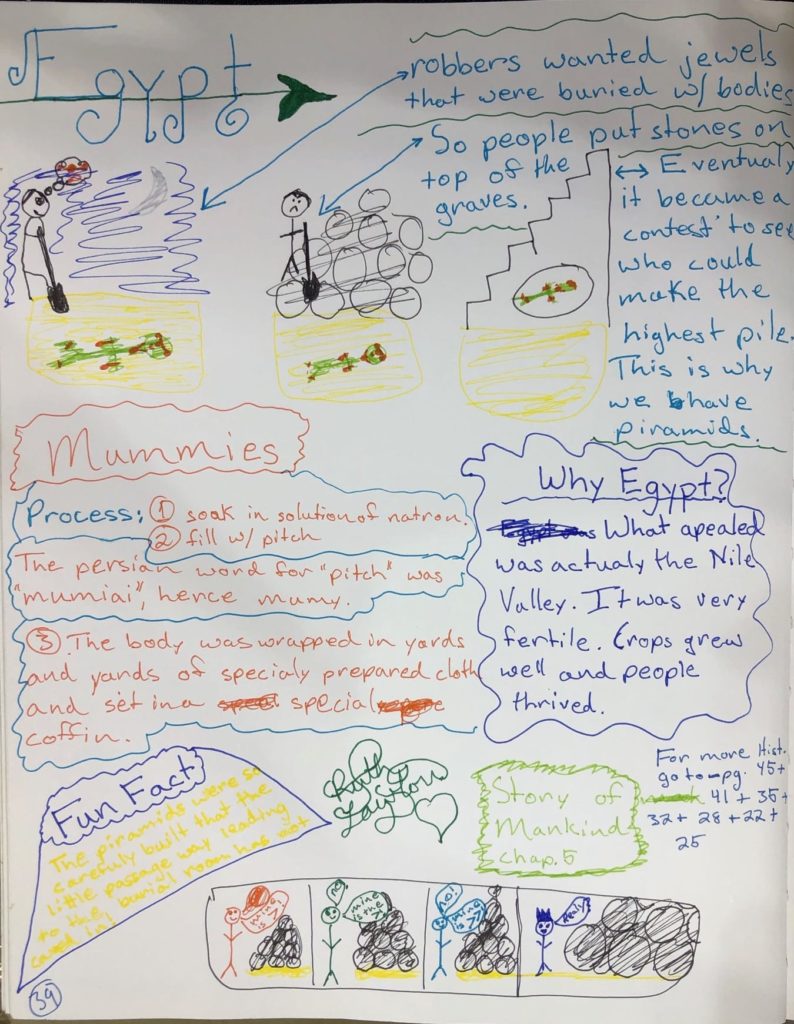 Egypt
robbers wanted jewels
that were buried w/ bodies
So people put stones on
top of the
graves.
Eventualy
it became a
contest to see
who could
make the
highest pile.
This is why
we have
piramids.
Mummies
Process: ① soak in solution of natron.
② fill w/ pitch
The persian word for "pitch" was
"mumiai", hence mumy.
③ The body was wrapped in yards
and yards of specialy prepared cloth
and set in a special
coffin.
Why Egypt?
What apealed
was actualy the Nile
Valley. It was very
fertile. Crops grew
well and people
thrived.
Fun Fact
The piramids were so
carefuly built that the
little passage way leading
to the burial room has not
caved in!
Ruth
Layton
Story of
Mankind
chap. 5
For more Hist.
go to pg. 45+
41 + 35+
32 + 28 + 22 +
25
mine
is
no!
mine
is the
no!
mine
is
Realy?
39